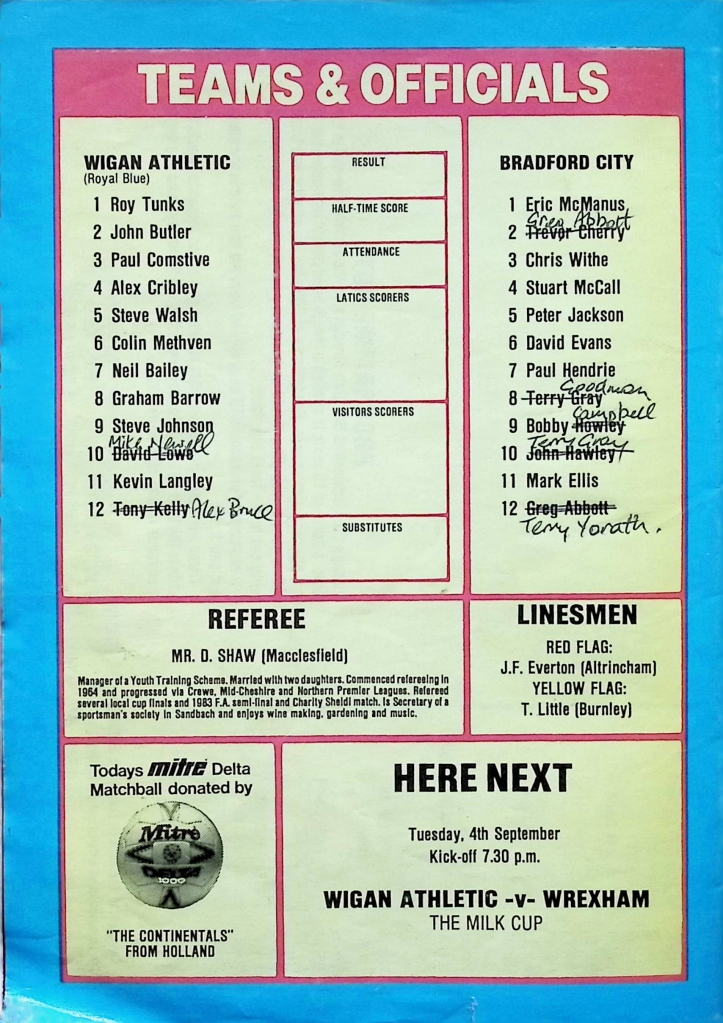 TEAMS & OFFICIALS
WIGAN ATHLETIC
(Royal Blue)
1 Roy Tunks
2 John Butler
3 Paul Comstive
4 Alex Cribley
5 Steve Walsh
6 Colin Methven
7 Neil Bailey
8 Graham Barrow
9 Steve Johnson
Mike Newell
10 David Lowe
11 Kevin Langley
12 Tony Kelly Alex Bruce
RESULT
HALF-TIME SCORE
ATTENDANCE
LATICS SCORERS
VISITORS SCORERS
SUBSTITUTES
BRADFORD CITY
1 Eric McManus
Greg Abbott
2 Trevor Cherry
3 Chris Withe
4 Stuart McCall
5 Peter Jackson
6 David Evans
7 Paul Hendrie
Goodman
8 Terry Gray
Campbell
9 Bobby Howley
Terry Gray
10 John Hawley
11 Mark Ellis
12 Greg Abbott
Terry Yorath.
REFEREE
MR. D. SHAW (Macclesfield)
Manager of a Youth Training Scheme. Married with two daughters. Commenced refereeing in
1964 and progressed via Crewe, Mid-Cheshire and Northern Premier Leagues. Refereed
several local cup finals and 1983 F.A. semi-final and Charity Sheldl match. Is Secretary of a
sportman's society in Sandbach and enjoys wine making, gardening and music.
LINESMEN
RED FLAG:
J.F. Everton (Altrincham)
YELLOW FLAG:
T. Little (Burnley)
Todays mitre Delta
Matchball donated by
Mitre
DELTA
1000
"THE CONTINENTALS"
FROM HOLLAND
HERE NEXT
Tuesday, 4th September
Kick-off 7.30 p.m.
WIGAN ATHLETIC -v- WREXHAM
THE MILK CUP